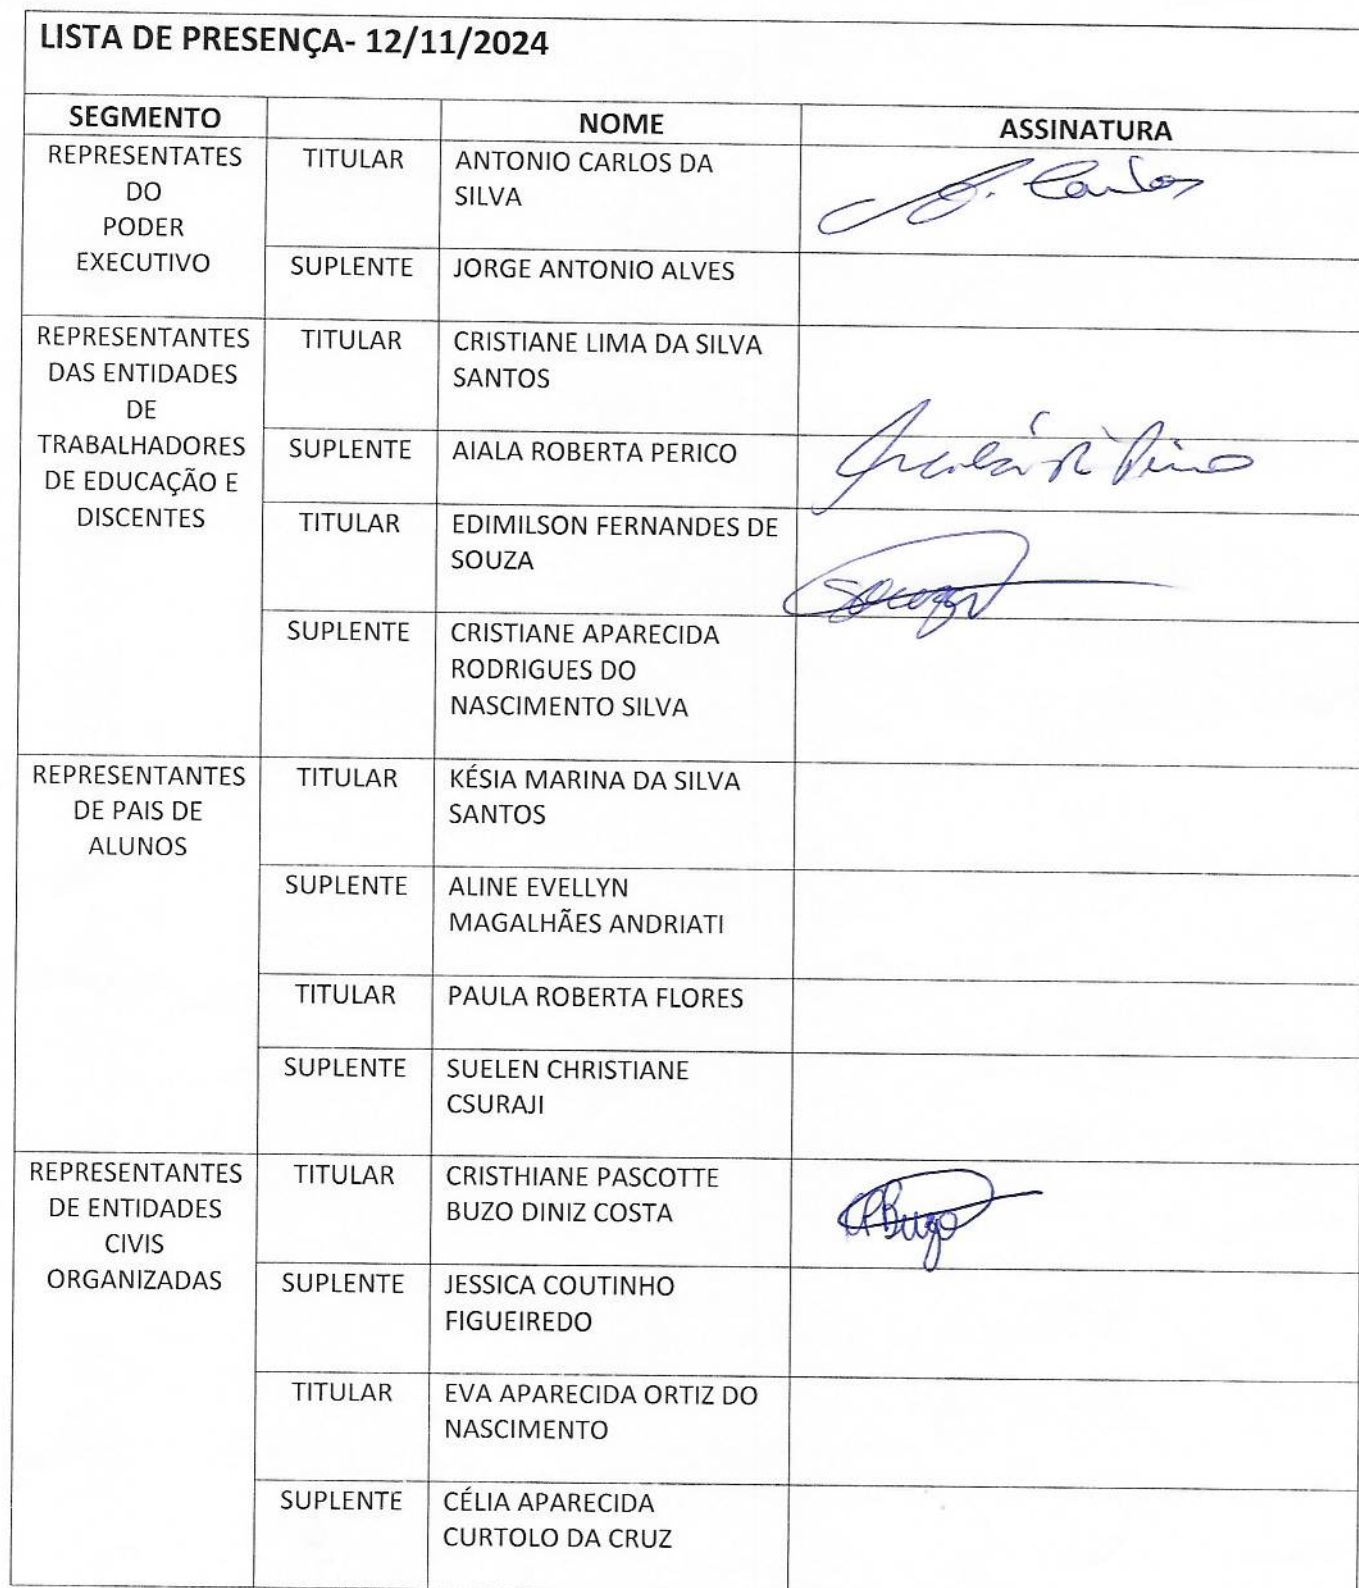 LISTA DE PRESENÇA- 12/11/2024
SEGMENTO NOME ASSINATURA
REPRESENTATES
DO
PODER
EXECUTIVO
TITULAR
ANTONIO CARLOS DA
SILVA
A. Carlos
SUPLENTE
JORGE ANTONIO ALVES
REPRESENTANTES
DAS ENTIDADES
DE
TRABALHADORES
DE EDUCAÇÃO E
DISCENTES
TITULAR
CRISTIANE LIMA DA SILVA
SANTOS
SUPLENTE
AIALA ROBERTA PERICO
TITULAR
EDIMILSON FERNANDES DE
SOUZA
SUPLENTE
CRISTIANE APARECIDA
RODRIGUES DO
NASCIMENTO SILVA
REPRESENTANTES
DE PAIS DE
ALUNOS
TITULAR
KÉSIA MARINA DA SILVA
SANTOS
SUPLENTE
ALINE EVELLYN
MAGALHÃES ANDRIATI
TITULAR
PAULA ROBERTA FLORES
SUPLENTE
SUELEN CHRISTIANE
CSURAJI
REPRESENTANTES
DE ENTIDADES
CIVIS
ORGANIZADAS
TITULAR
CRISTHIANE PASCOTTE
BUZO DINIZ COSTA
SUPLENTE
JESSICA COUTINHO
FIGUEIREDO
TITULAR
EVA APARECIDA ORTIZ DO
NASCIMENTO
SUPLENTE
CÉLIA APARECIDA
CURTOLO DA CRUZ